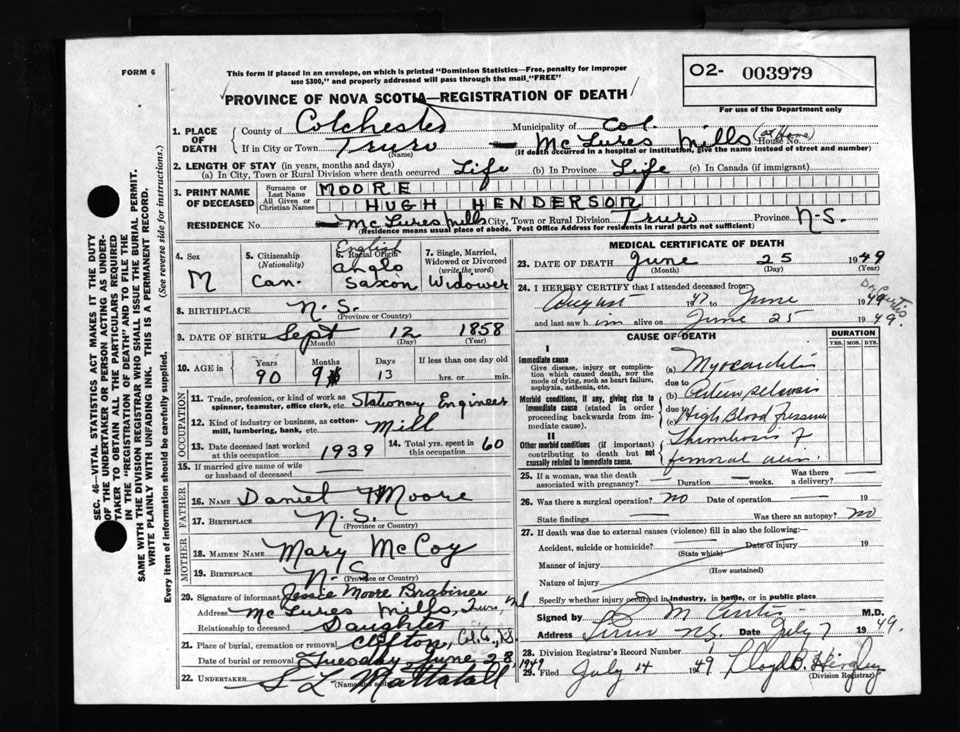 FORM 6
This form if placed in an envelope, on which is printed "Dominion Statistics—Free, penalty for improper
use $300," and properly addressed will pass through the mail "FREE"
O2- 003979
For use of the Department only
PROVINCE OF NOVA SCOTIA—REGISTRATION OF DEATH
1. PLACE OF DEATH { County of Colchester Municipality of Col
If in City or Town Truro (Name) McLures Mills House No. (at Home)
(If death occurred in a hospital or institution, give the name instead of street and number)
2. LENGTH OF STAY (in years, months and days)
(a) In City, Town or Rural Division where death occurred Life (b) In Province Life (c) In Canada (if immigrant)
3. PRINT NAME OF DECEASED { Surname or Last Name MOORE
All Given or Christian Names HUGH HENDERSON
RESIDENCE No. McLures Mills City, Town or Rural Division Truro Province N-S.
(Residence means usual place of abode. Post Office Address for residents in rural parts not sufficient)
4. Sex M
5. Citizenship (Nationality) Can.
6. Racial Origin English Anglo Saxon
7. Single, Married, Widowed or Divorced (write the word) Widower
8. BIRTHPLACE N.S. (Province or Country)
9. DATE OF BIRTH Sept (Month) 12 (Day) 1858 (Year)
10. AGE IN { Years 90 Months 9 Days 13 If less than one day old hrs. or min.
OCCUPATION
11. Trade, profession, or kind of work as spinner, teamster, office clerk, etc. Stationary Engineer
12. Kind of industry or business, as cotton-mill, lumbering, bank, etc. Mill
13. Date deceased last worked at this occupation 1939
14. Total yrs. spent in this occupation 60
15. If married give name of wife or husband of deceased
FATHER
16. NAME Daniel Moore
17. BIRTHPLACE N.S. (Province or Country)
MOTHER
18. MAIDEN NAME Mary McCoy
19. BIRTHPLACE N-S (Province or Country)
20. Signature of informant Jessie Moore Brabiner
Address McLures Mills, Truro, NS
Relationship to deceased Daughter
21. Place of burial, cremation or removal Clifton, Col. Co., N.S.
Date of burial or removal Tuesday June 28 1949
22. UNDERTAKER S L Mattatall (Name and
MEDICAL CERTIFICATE OF DEATH
23. DATE OF DEATH June (Month) 25 (Day) 1949 (Year)
24. I HEREBY CERTIFY that I attended deceased from:
August 1947 to June 1949 Dr Curtis
and last saw him alive on June 25 1949.
CAUSE OF DEATH
DURATION
YRS. MOS. DYS.
I
Immediate cause
Give disease, injury or complication which caused death, NOT the mode of dying, such as heart failure, asphyxia, asthenia, etc.
(a) Myocarditis
due to
Morbid conditions, if any, giving rise to immediate cause (stated in order proceeding backwards from immediate cause).
due to
(c) High Blood pressure
II
Other morbid conditions (if important) contributing to death but not causally related to immediate cause.
Thrombosis of
femoral vein.
25. If a woman, was the death associated with pregnancy? Duration weeks. Was there a delivery?
26. Was there a surgical operation? NO Date of operation 19
State findings Was there an autopsy? NO
27. If death was due to external causes (violence) fill in also the following:—
Accident, suicide or homicide? (State which) Date of injury 19
Manner of injury (How sustained)
Nature of injury
Specify whether injury occurred in industry, in home, or in public place
Signed by S M Curtis M.D.
Address Truro NS Date July 7 1949.
28. Division Registrar's Record Number
29. Filed July 14 1949 Lloyd B. (Division Registrar)
SEC. 46—VITAL STATISTICS ACT MAKES IT THE DUTY
OF THE UNDERTAKER OR PERSON ACTING AS UNDER-
TAKER TO OBTAIN ALL THE PARTICULARS REQUIRED
IN THE "REGISTRATION OF DEATH" AND TO FILE THE
SAME WITH THE DIVISION REGISTRAR WHO SHALL ISSUE THE BURIAL PERMIT.
WRITE PLAINLY WITH UNFADING INK. THIS IS A PERMANENT RECORD.
Every item of information should be carefully supplied. (See reverse side for instructions.)